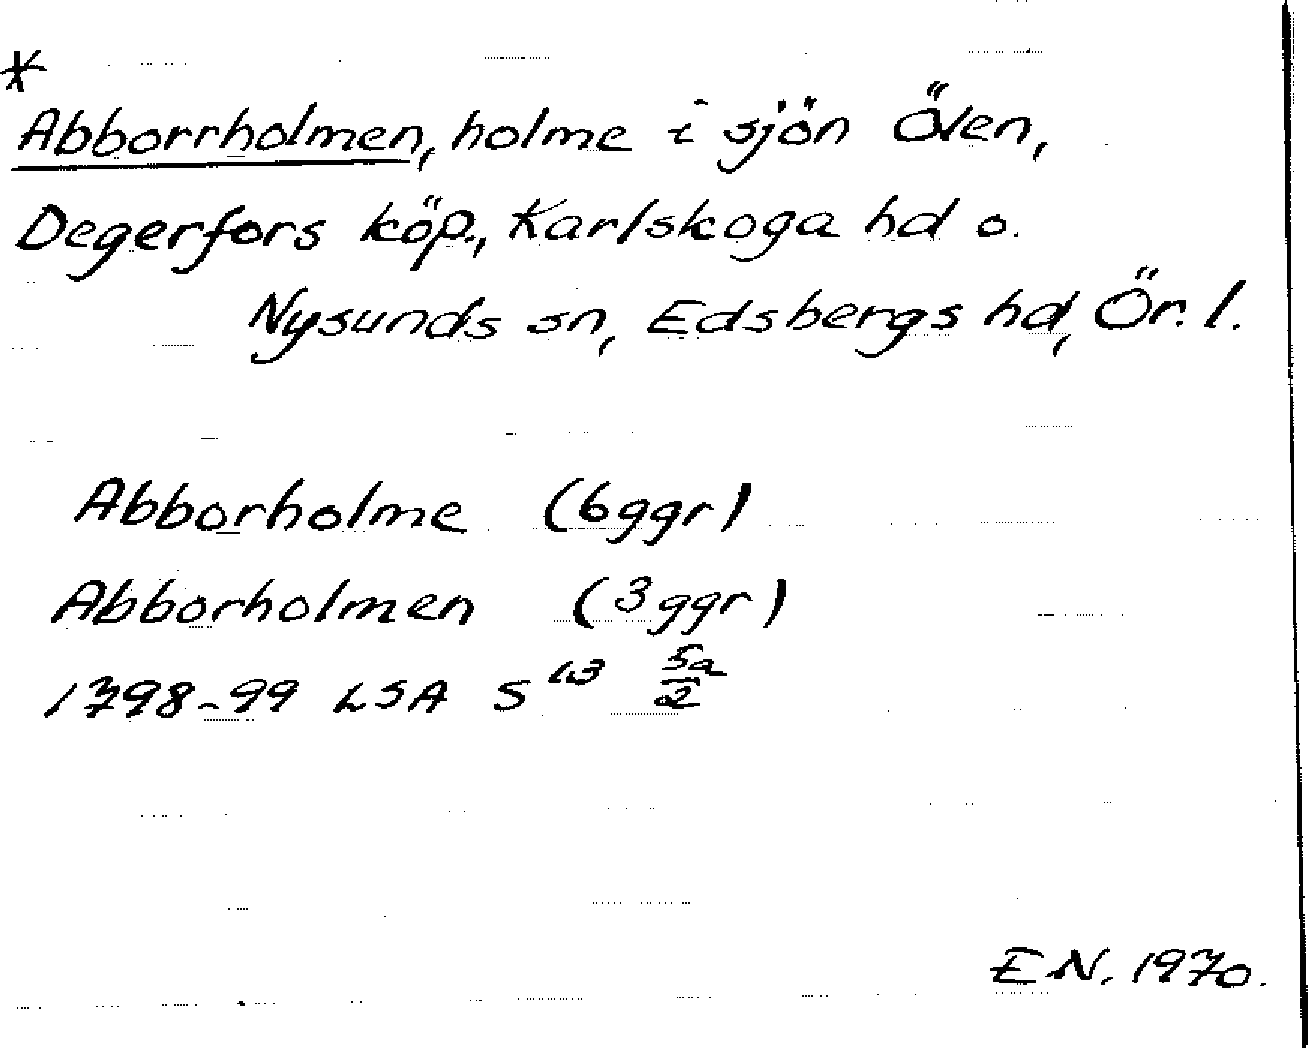 *
Abborrholmen, holme i sjön Ölen,
Degerfors köp., Karlskoga hd o.
Nysunds sn, Edsbergs hd, Ör. l.
Abborholme (6ggr)
Abborholmen (3ggr)
1798-99 LSA S 5a/2
E.N. 1970.